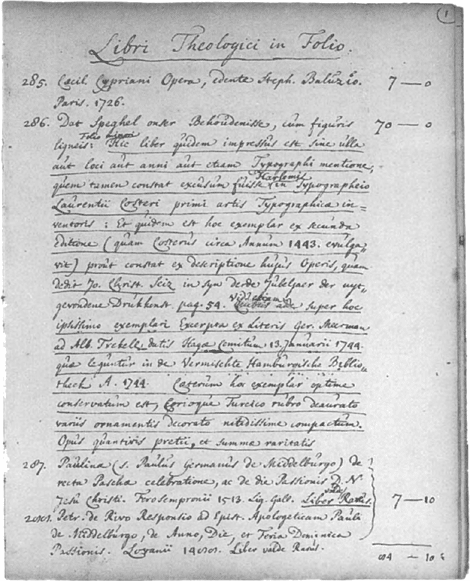 1
Libri Theologici in Folio.
285. Cæcil Cypriani Opera, edente Steph. Baluzio. 7 — 0
Paris. 1726.
286. Dat Speghel onser Behoudenisse, cum figuris 70 — 0
ligneis: Hic liber quidem impressus est sine ulla
aut loci aut anni aut etiam Typographi mentione,
Harlemis
quem tamen constat excusum fuisse in Typographeio
Laurentii Costeri primi artis Typographicæ in=
ventoris: Et quidem est hoc exemplar ex secunda
Editione (quam Costerus circa Annum 1443. evulga=
vit) prout constat ex descriptione hujus Operis, quam
dedit Jo. Christ. Seiz in syn derde Jubeljaer der uyt=
gevondene Drukkonst. pag. 54. super hoc
ipsissimo exemplari Excerpta ex Literis Ger. Meerman
ad Alb. datis Hagæ Comitum 13. Januarii 1744.
quæ leguntur in de Vermischte Hamburgische Biblio=
theck A. 1744. Cæterum hoc exemplar optime
conservatum est, Corioque Turcico rubro deaurato
variis ornamentis decorato nitidissime compactum.
Opus quantivis pretii, et summæ raritatis
287. Paulina (s. Paulus Germanus de Middelburgo) de
recta Paschæ celebratione, ac de die Passionis D. N.
Jesu Christi. Forosempronii 1513. Lig. Gall. Liber Rariss. 7 — 10
Petr. de Rivo Responsio ad Epist. Apologeticam Pauli
de Middelburgo, de Anno, Die, et Feria Dominicæ
Passionis. Lovanii Liber valde Rarus.
84 — 10